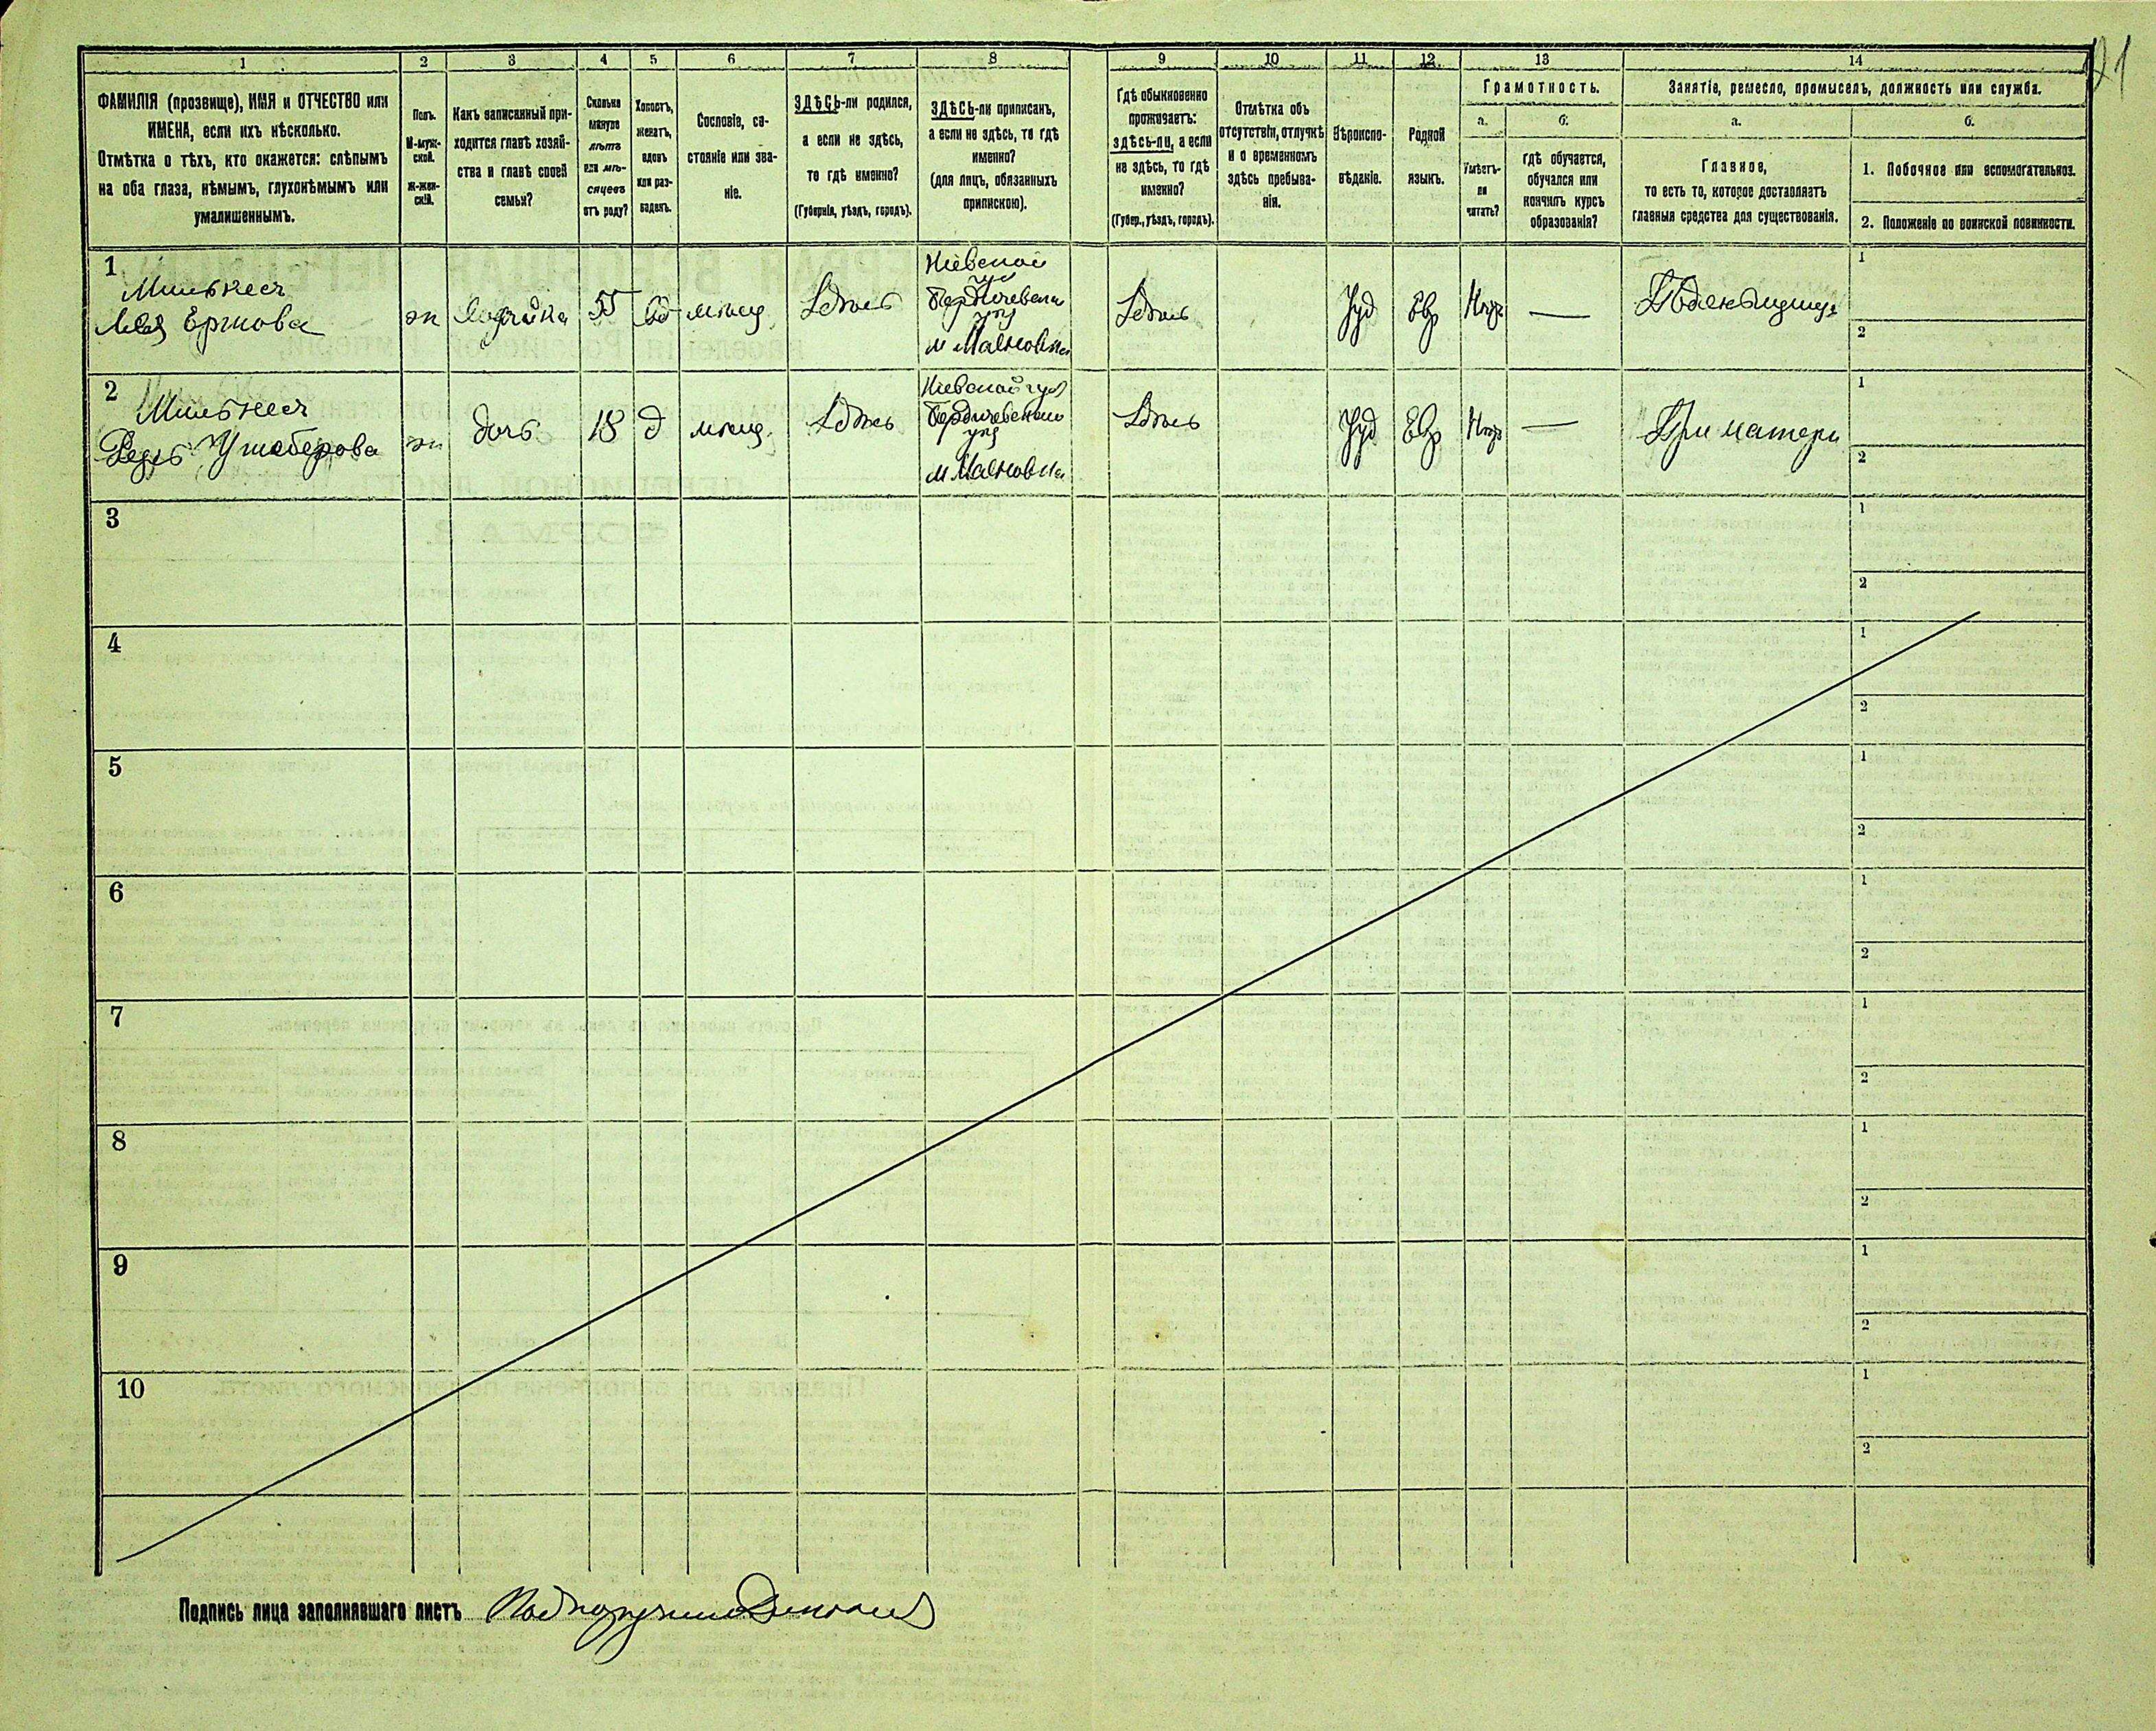 1 2 3 4 5 6 7 8 9 10 11 12 13 14
ФАМИЛІЯ (прозвище), ИМЯ и ОТЧЕСТВО или
ИМЕНА, если ихъ нѣсколько.
Отмѣтка о тѣхъ, кто окажется: слѣпымъ
на оба глаза, нѣмымъ, глухонѣмымъ или
умалишеннымъ.
Полъ.
М-муж-
ской.
Ж-жен-
скій.
Какъ записанный при-
ходится главѣ хозяй-
ства и главѣ своей
семьи?
Сколько
минуло
лѣтъ
или мѣ-
сяцевъ
отъ роду?
Холостъ,
женатъ,
вдовъ
или раз-
веденъ.
Сословіе, со-
стояніе или зва-
ніе.
ЗДѢСЬ-ли родился,
а если не здѣсь,
то гдѣ именно?
(Губернія, уѣздъ, городъ).
ЗДѢСЬ-ли приписанъ,
а если не здѣсь, то гдѣ
именно?
(для лицъ, обязанныхъ
припискою).
Гдѣ обыкновенно
проживаетъ:
здѣсь-ли, а если
не здѣсь, то гдѣ
именно?
(Губер., уѣздъ, городъ).
Отмѣтка объ
отсутствіи, отлучкѣ
и о временномъ
здѣсь пребыва-
ніи.
Вѣроиспо-
вѣданіе.
Родной
языкъ.
Грамотность.
а.
Умѣетъ-
ли
читать?
б.
гдѣ обучается,
обучался или
кончилъ курсъ
образованія?
Занятіе, ремесло, промыселъ, должность или служба.
а.
Главное,
то есть то, которое доставляетъ
главныя средства для существованія.
б.
1. Побочное или вспомогательное.
2. Положеніе по воинской повинности.
1
ж
Хозяйка
55
вд
мѣщ
Здѣсь
Кіевской
губ
Бердичевскаго
уѣз
м Махновка
Здѣсь
Іуд
Евр
Негр
—
Поденьщица
1
2
2
ж
дочь
18
д
мѣщ.
Здѣсь
Кіевской губ
Бердичевскаго
уѣз
м Махновка
Здѣсь
Іуд
Евр
Негр
—
При матери
1
2
3
1
2
4
1
2
5
1
2
6
1
2
7
1
2
8
1
2
9
1
2
10
1
2
Подпись лица заполнявшаго листъ